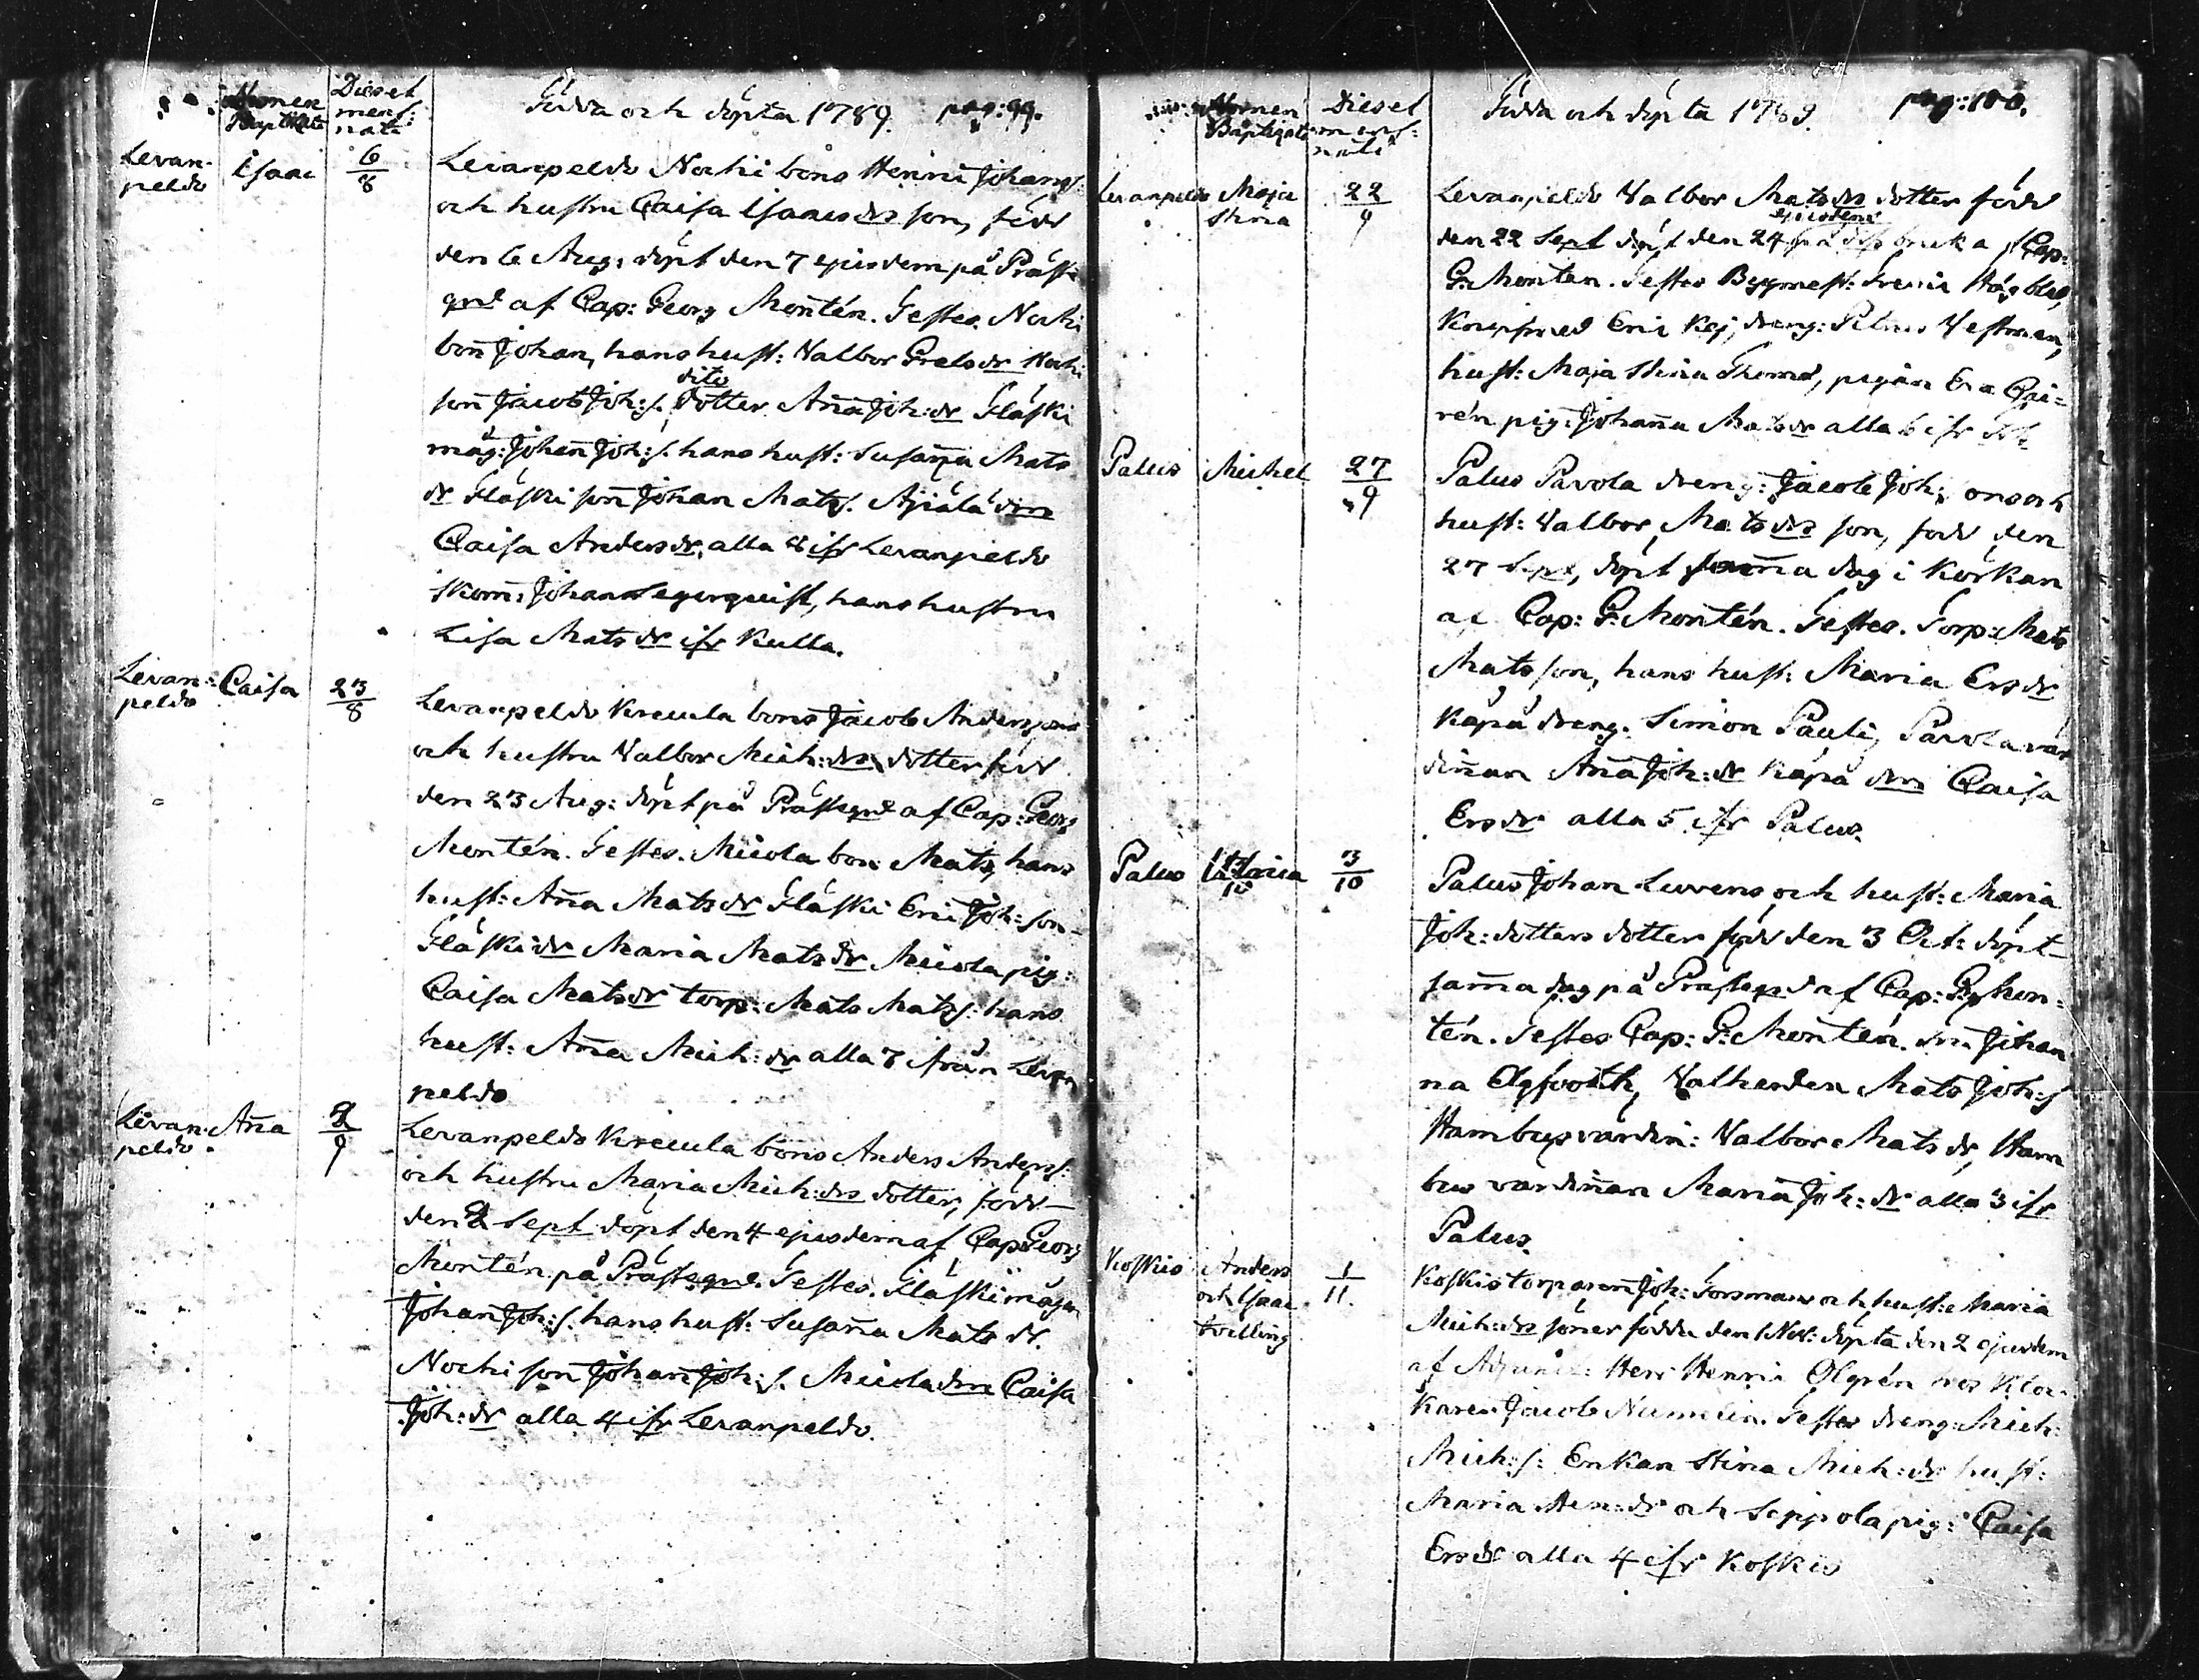 Nomen Baptizati
Dies et mens: nati
Födda och döpta 1789. pag: 99.
Levan-
peldo
Isaac
6/8
Levanpeldo Nochi bons Henric Johans/:
och hustru Caisa Isaacs drs son, född
den 6 Aug: döpt den 7 ejusdem på Präste
grd af Cap: Georg Montén. Testes. Nochi
bon̄ Johan, hans hust: Valbor Grels dr Nochi
son̄ Jacob Joh:s. dito dotter An̄a Joh: dr Fläski
måg: Johan̄ Joh:s. hans hust: Susan̄a Mats
dr Fläski son̄ Johan Mats/. Äjälä drn
Caisa Anders dr, alla 8 ifr Levanpeldo
Skom: Johan Segerquist, hans hustru
Lisa Mats dr ifr Kulla.
Levan:
peldo
Caisa
23/8
Levanpeldo Krecula bons Jacob Anderssons
och hustru Valbor Mich: drs dotter född
den 23 Aug: döpt på Prästegrd af Cap: Georg
Montén. Testes. Micola bon Mats, hans
hust: An̄a Mats dr Fläski Eric Joh: son
Fläski dr Maria Mats dr Micola pig:
Caisa Mats dr torp: Mats Mats/: hans
hust: An̄a Mich: dr alla 7 från Levan
peldo
Levan:
peldo
An̄a
2/9
Levanpeldo Krecula bons Anders Anders/:
och hustru Maria Mich: drs dotter, född
den 2 Sept döpt den 4 ejusdem af Cap Georg
Montén på Prästegrd. Testes. Fläski mågen
Johan Joh:s. hans hust: Susan̄a Mats dr.
Nochi son Johan̄ Joh:s. Micola drn Caisa
Joh: dr alla 4 ifr Levanpeldo.
Nomen Baptizati
Dies et mens: nati
Födda och döpta 1789. pag: 100.
Levanpeldo
Maja
Stina
22/9
Levanpeldo Valbor Mats drs dotter född
den 22 Sept döpt den 24 ejusdem på bruk a f Cap:
G: Montén. Testes Byggmest:
Knipsmed Eric Koj, dreng: Petrus Vestman,
hust: Maja Stina pigan Eva Cai=
rén pig: Johan̄a Mats dr alla 6 ifr
Palus
Michel
27/9
Palus Pavola dreng: Jacob Joh: ons och
hust: Valbor, Mats drs son, född den
27 Sept, döpt sam̄a dag i Körkan
af Cap: G: Montén. Testes. Torp: Mats
Matsson, hans hust: Maria Ers dr
Kåpå dreng: Simon Pauli, Pavola vär
din̄an An̄a Joh: dr Kåpå drn Caisa
Ers dr alla 5 ifr Palus.
Palus
Maria
3/10
Palus Johan Luvens och hust: Maria
Joh: dotters dotter född den 3 Oct: döpt
sam̄a dag på Prästegrd af Cap: Gg Mon=
tén. Testes Cap: G: Montén. Johan
na Elgfooth, Valherden Mats Joh:s
Hambus värdin: Valbor Mats dr, Ham
bus värdin̄an Maria Joh: dr alla 3 ifr
Palus.
Koskis
Anders
och Isaac
tvilling
1/11.
Koskis torparen̄ Joh: Forsman och hust: Maria
Mich: drs söner födda den 1 Nov: döpta den 2 ejusdem
af Adjunct: Herr Henric Elgrén hos Kloc
karen Jacob Numelin. Testes dreng: Mich:
Mich:s: Enkan Stina Mich: dr hust:
Maria Hen: dr och Seppola pig: Caisa
Ers dr alla 4 ifr Koskis